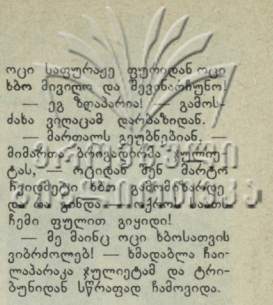 ოცი საფურაჟე ფურიდან ოცი
ხბო მივიღო და შევინარჩუნო!
— ეგ ზღაპარია! — გამოს-
ძახა ვიღაცამ დარბაზიდან.
— მართალს გეუბნებიან, —
მიმართა ბრიგადირმა ჯულიე
ტას, — ოციდან შენ მარტო
ჩვიდმეტი ხბო გამომიზარდე
და გინდა — ოქროს საათს
ჩემი ფულით გიყიდი!
— მე მაინც ოცი ხბოსათვის
ვიბრძოლებ! — ხმადაბლა ჩაი-
ლაპარაკა ჯულიეტამ და ტრი-
ბუნიდან სწრაფად ჩამოვიდა.